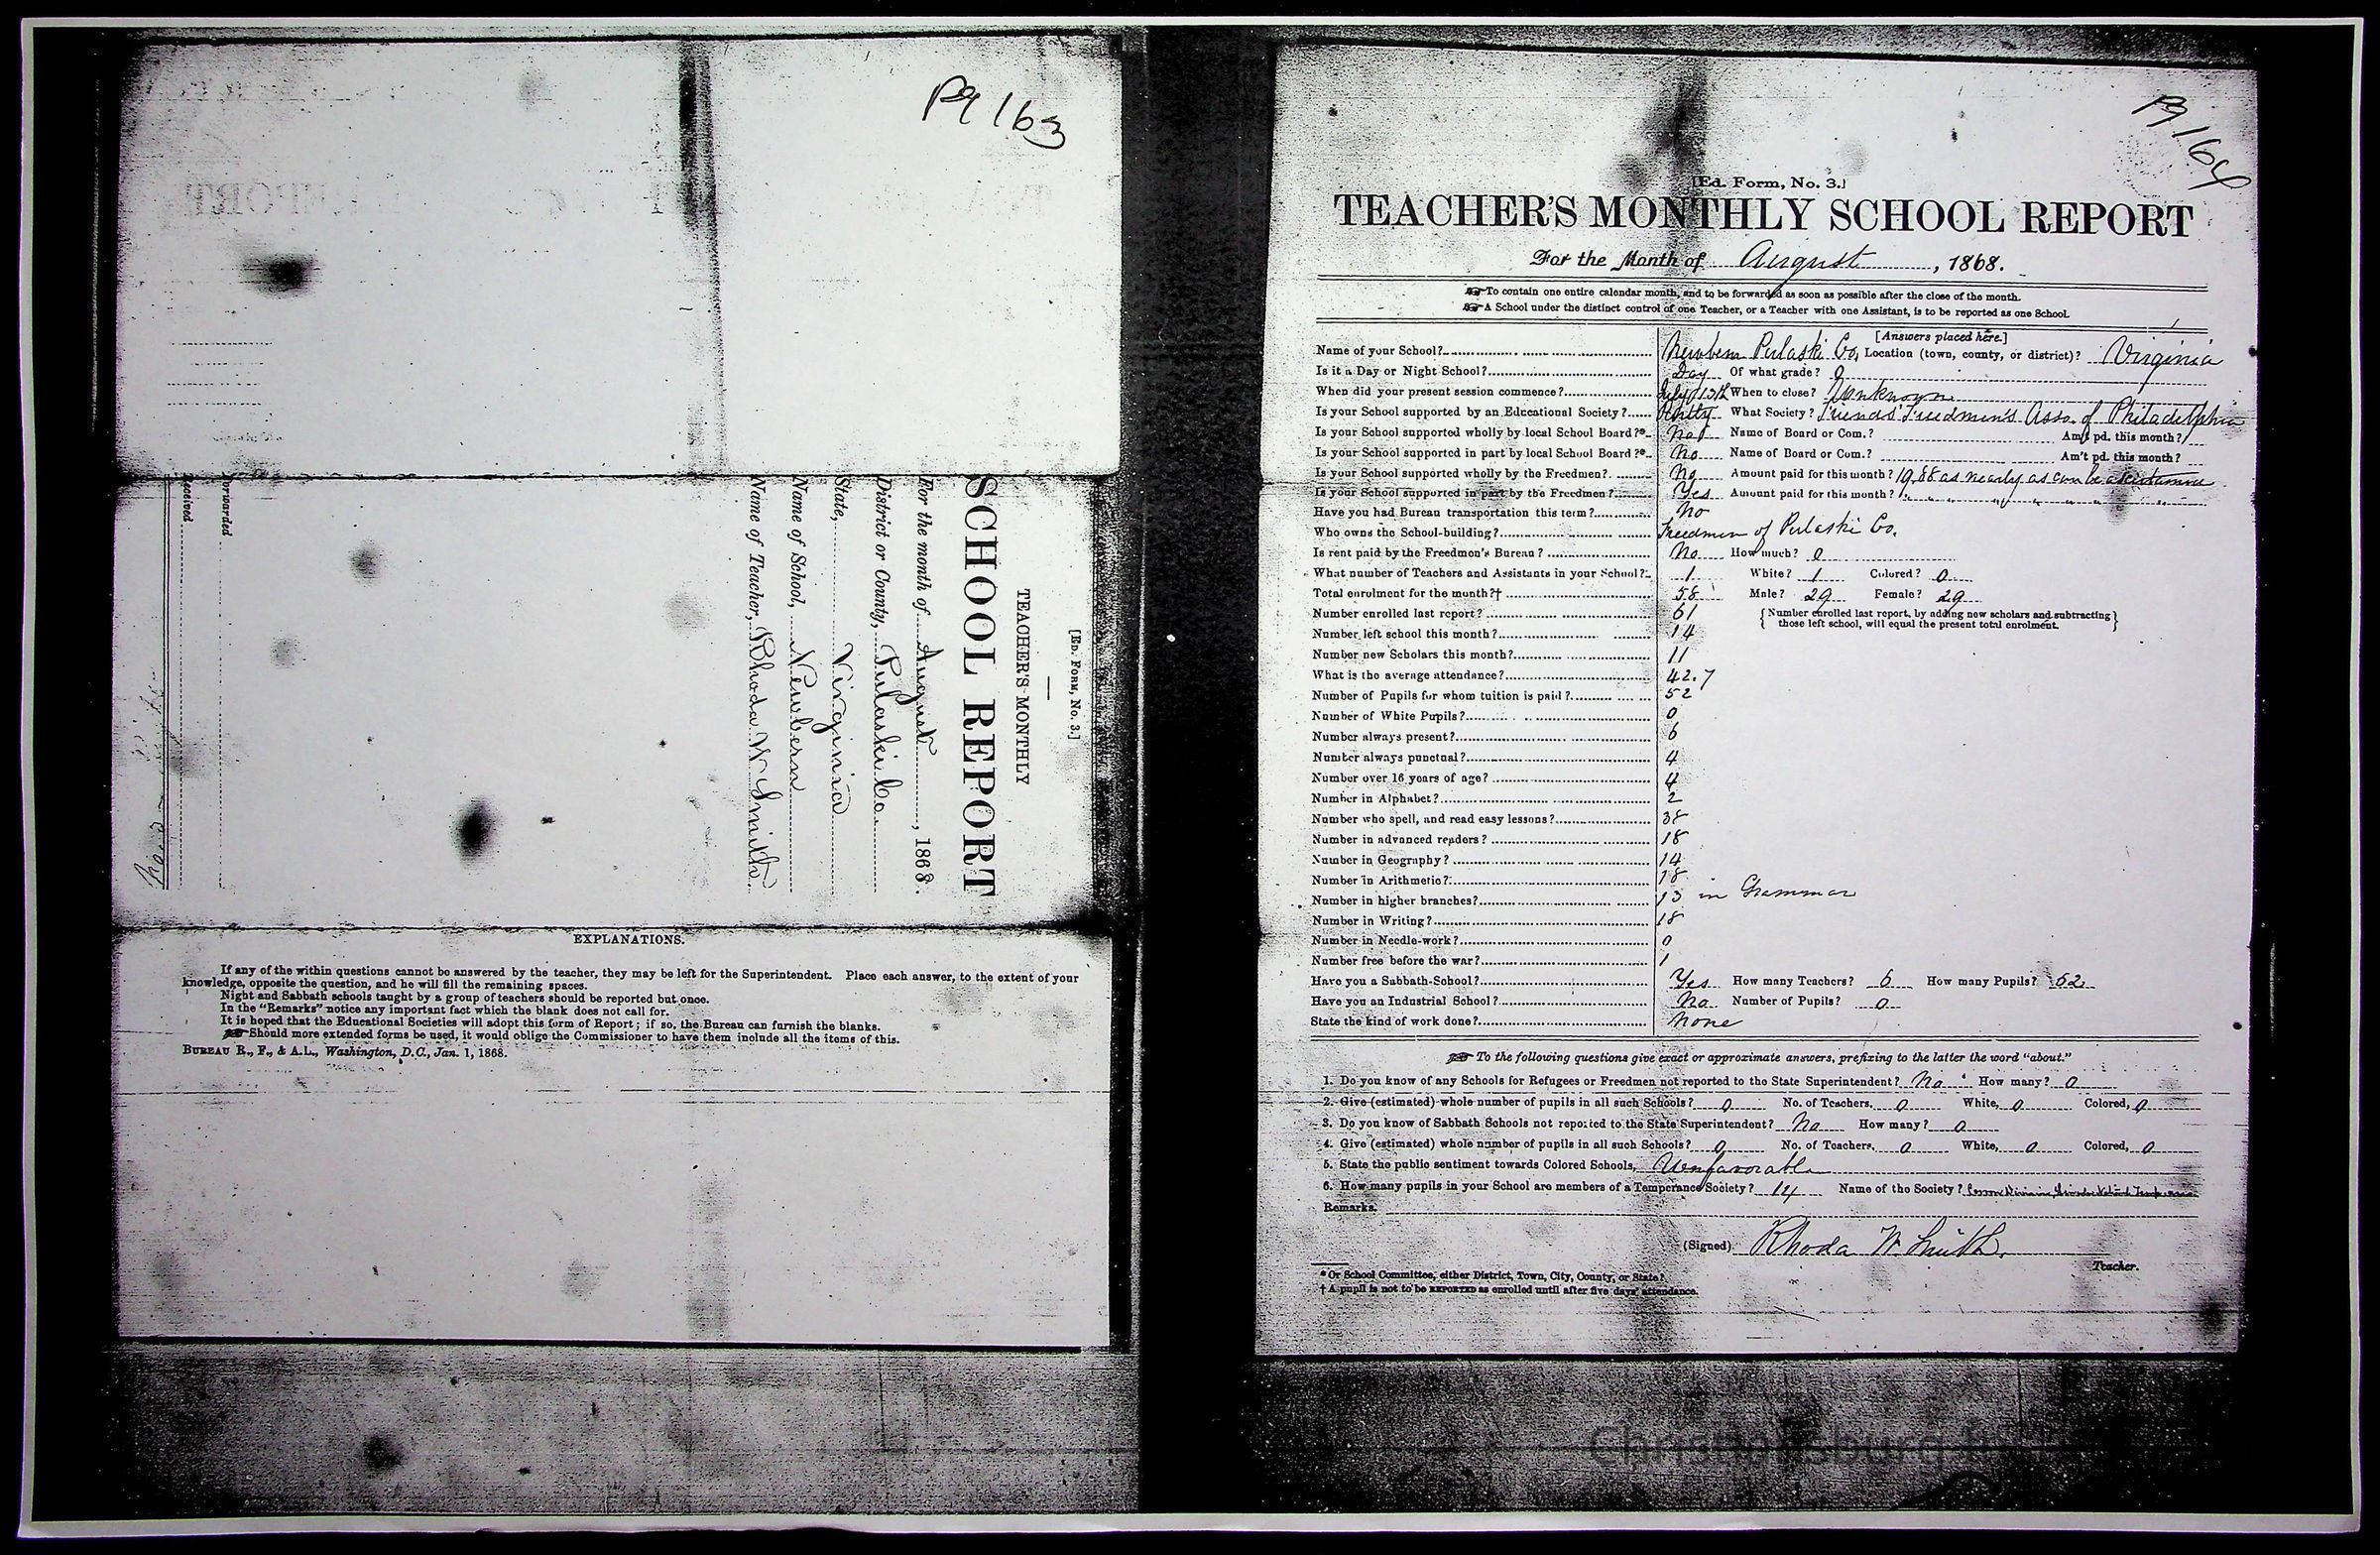 Pg 163
[Ed. Form, No. 3.]
TEACHER'S MONTHLY
SCHOOL REPORT
For the month of August, 1868.
District or County, Pulaski Co.
State, Virginia
Name of School, Newbern
Name of Teacher, Rhoda W. Smith.
Forwarded
Received
EXPLANATIONS.
If any of the within questions cannot be answered by the teacher, they may be left for the Superintendent. Place each answer, to the extent of your
knowledge, opposite the question, and he will fill the remaining spaces.
Night and Sabbath schools taught by a group of teachers should be reported but once.
In the "Remarks" notice any important fact which the blank does not call for.
It is hoped that the Educational Societies will adopt this form of Report; if so, the Bureau can furnish the blanks.
☞ Should more extended forms be used, it would oblige the Commissioner to have them include all the items of this.
BUREAU R., F., & A.L., Washington, D.C., Jan. 1, 1868.
Pg 164
[Ed. Form, No. 3.]
TEACHER'S MONTHLY SCHOOL REPORT
For the Month of August, 1868.
☞ To contain one entire calendar month, and to be forwarded as soon as possible after the close of the month.
☞ A School under the distinct control of one Teacher, or a Teacher with one Assistant, is to be reported as one School.
[Answers placed here.]
Name of your School? Newbern Pulaski Co, Location (town, county, or district)? Virginia
Is it a Day or Night School? Day Of what grade? 0
When did your present session commence? July 13th When to close? Unknown
Is your School supported by an Educational Society? Partly What Society? Friends' Freedmen's Asso. of Philadelphia
Is your School supported wholly by local School Board?* No Name of Board or Com.? Am't pd. this month?
Is your School supported in part by local School Board?* No Name of Board or Com.? Am't pd. this month?
Is your School supported wholly by the Freedmen? No Amount paid for this month? 19.88 as nearly as can be
Is your School supported in part by the Freedmen? Yes Amount paid for this month? " " " " " "
Have you had Bureau transportation this term? No
Who owns the School-building? Freedmen of Pulaski Co.
Is rent paid by the Freedmen's Bureau? No How much? 0
What number of Teachers and Assistants in your School? 1 White? 1 Colored? 0
Total enrolment for the month?† 58 Male? 29 Female? 29
Number enrolled last report? 61 { Number enrolled last report, by adding new scholars and subtracting }
Number left school this month? 14 those left school, will equal the present total enrolment.
Number new Scholars this month? 11
What is the average attendance? 42.7
Number of Pupils for whom tuition is paid? 52
Number of White Pupils? 0
Number always present? 6
Number always punctual? 4
Number over 16 years of age? 4
Number in Alphabet? 2
Number who spell, and read easy lessons? 38
Number in advanced readers? 18
Number in Geography? 14
Number in Arithmetic? 18
Number in higher branches? 13 in Grammar
Number in Writing? 18
Number in Needle-work? 0
Number free before the war? 1
Have you a Sabbath-School? Yes How many Teachers? 6 How many Pupils? 62
Have you an Industrial School? No Number of Pupils? 0
State the kind of work done? None
☞ To the following questions give exact or approximate answers, prefixing to the latter the word "about."
1. Do you know of any Schools for Refugees or Freedmen not reported to the State Superintendent? No How many? 0
2. Give (estimated) whole number of pupils in all such Schools? 0 No. of Teachers, 0 White, 0 Colored, 0
3. Do you know of Sabbath Schools not reported to the State Superintendent? No How many? 0
4. Give (estimated) whole number of pupils in all such Schools? 0 No. of Teachers, 0 White, 0 Colored, 0
5. State the public sentiment towards Colored Schools, Unfavorable
6. How many pupils in your School are members of a Temperance Society? 14 Name of the Society?
Remarks.
(Signed) Rhoda W. Smith.
Teacher.
* Or School Committee, either District, Town, City, County, or State?
† A pupil is not to be REPORTED as enrolled until after five days' attendance.